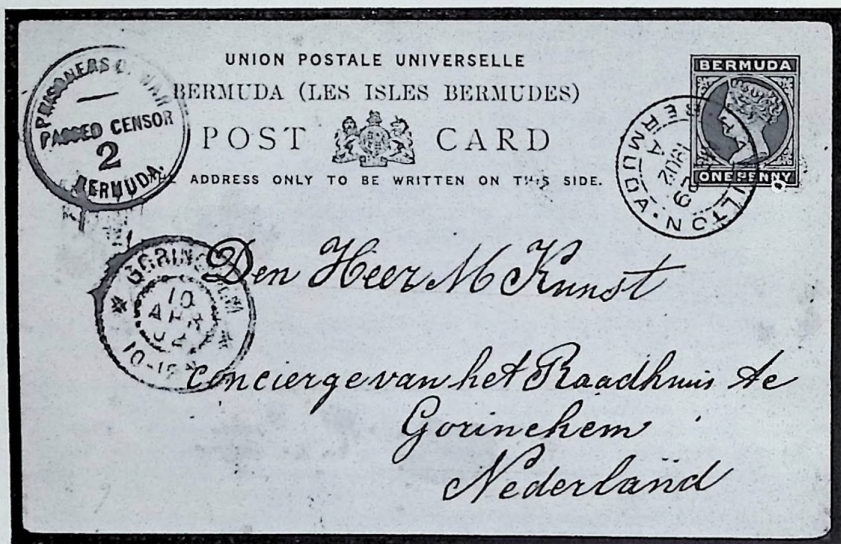 UNION POSTALE UNIVERSELLE
BERMUDA (LES ISLES BERMUDES)
POST CARD
ADDRESS ONLY TO BE WRITTEN ON THIS SIDE.
BERMUDA
ONE PENNY
PRISONERS OF WAR
PASSED CENSOR
2
BERMUDA.
HAMILTON BERMUDA
A
1902
GORINCHEM
10
APR
02
Den Heer M Kunst
concierge van het Raadhuis te
Gorinchem
Nederland